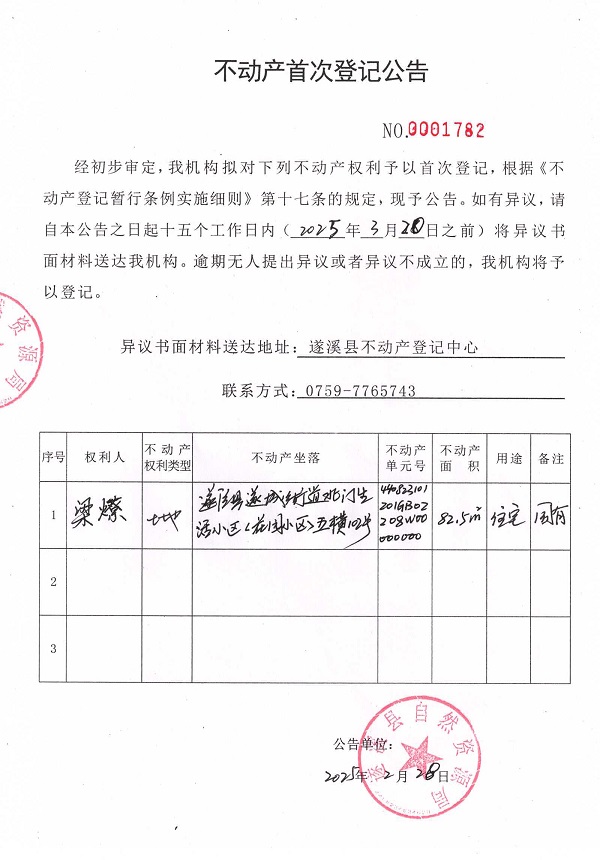 不动产首次登记公告
NO.0001782
经初步审定，我机构拟对下列不动产权利予以首次登记，根据《不
动产登记暂行条例实施细则》第十七条的规定，现予公告。如有异议，请
自本公告之日起十五个工作日内（2025年3月20日之前）将异议书
面材料送达我机构。逾期无人提出异议或者异议不成立的，我机构将予
以登记。
资源局
异议书面材料送达地址：遂溪县不动产登记中心
联系方式：0759-7765743
序号 权利人 不动产权利类型 不动产坐落 不动产单元号 不动产面积 用途 备注
1 梁燎 土地 遂溪县遂城街道北门生活小区（花园小区）五横 号 440823101201GB02208W00000000 82.5㎡ 住宅 国有
2
3
公告单位：
2025年2月28日
遂溪县自然资源局